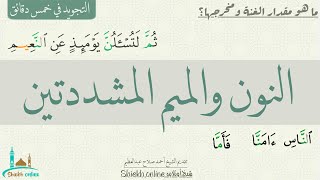 التجويد في خمس دقائق
ما هو مقدار الغنة و مخرجها؟
ثُمَّ لَتُسْـَٔلُنَّ يَوْمَئِذٍ عَنِ ٱلنَّعِيمِ
النون والميم المشددتين
ٱلنَّاسِ ءَامَنَّا فَأَمَّا
Shaikh online
تقديم الشيخ أحمد صلاح عبدالعظيم
Sheikh.online